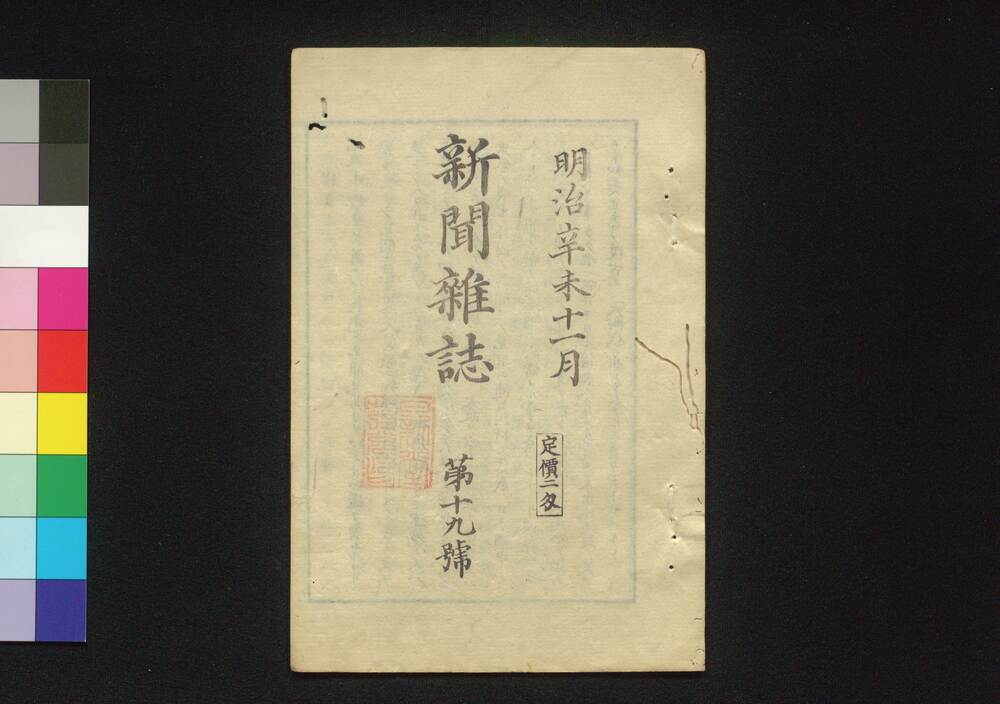 明治辛未十一月
定價二匁
新聞雜誌
第十九號